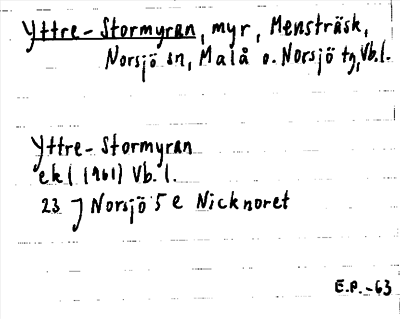 Yttre-Stormyran, myr, Mensträsk,
Norsjö sn, Malå o. Norsjö tg, Vb.l.
Yttre-Stormyran
ekl (1961) Vb.l.
23 J Norsjö 5 e Nicknoret
E.P.-63